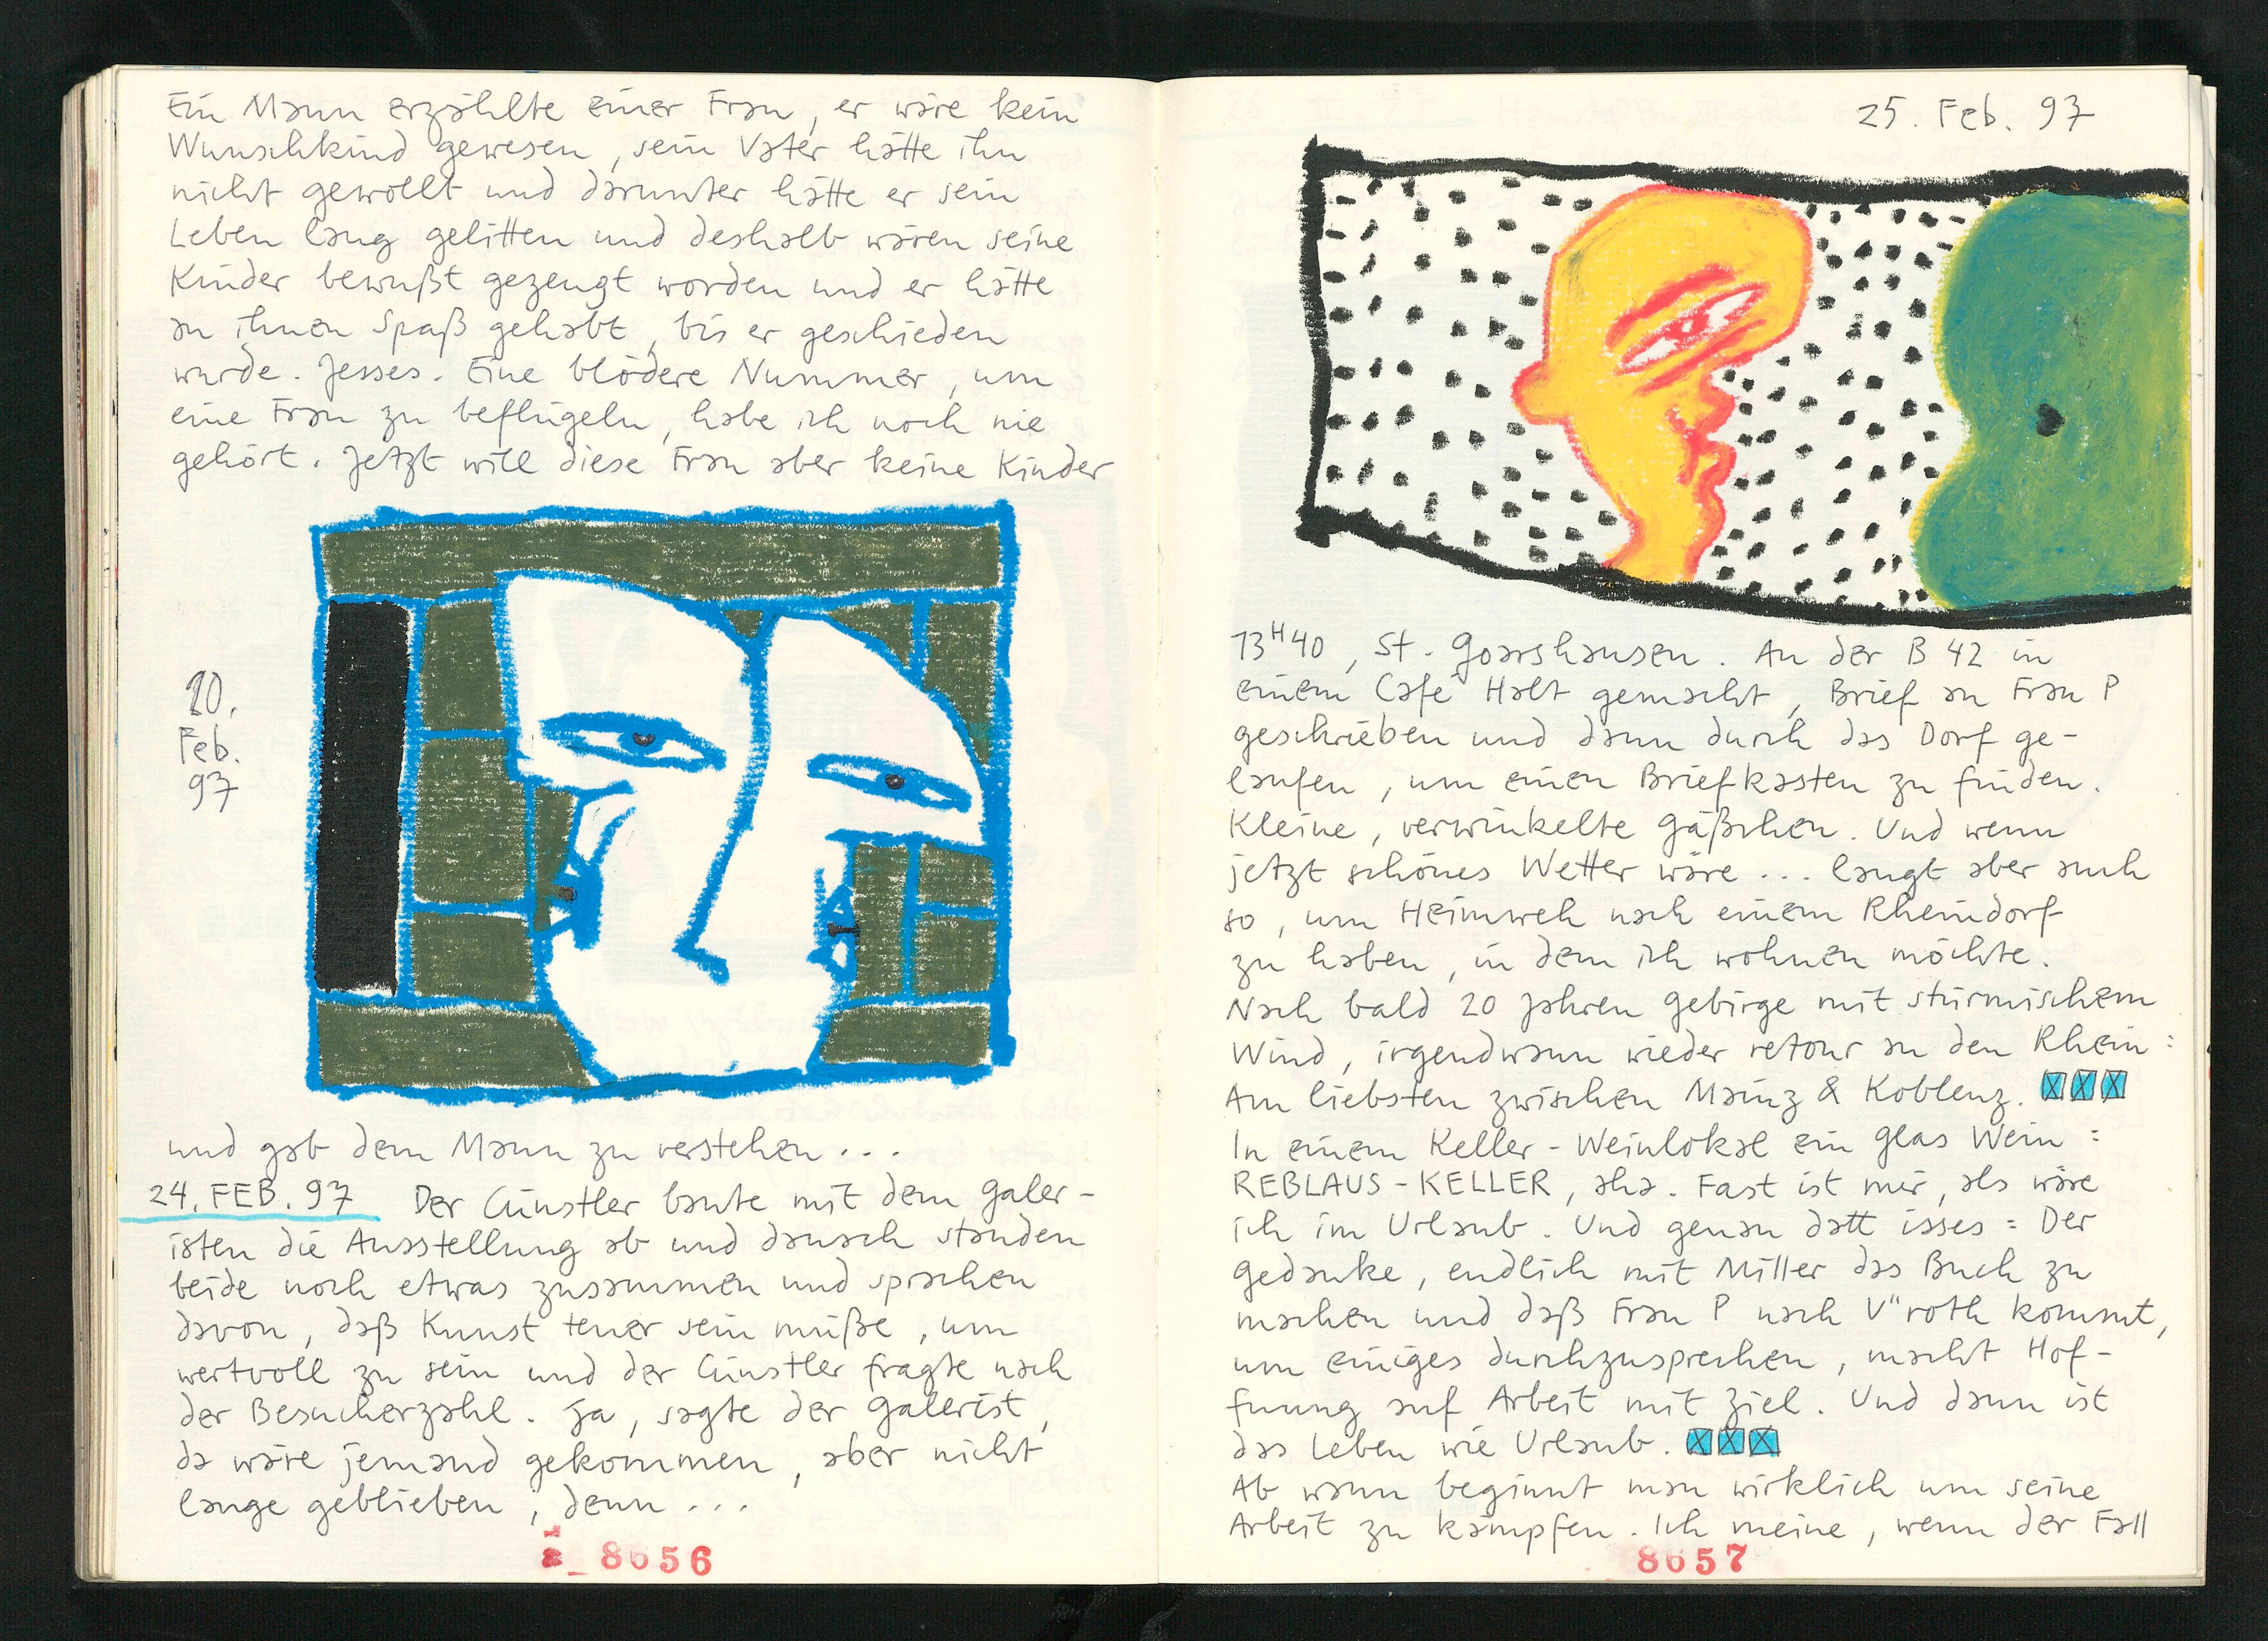 Ein Mann erzählte einer Frau, er wäre kein
Wunschkind gewesen, sein Vater hätte ihn
nicht gewollt und darunter hätte er sein
Leben lang gelitten und deshalb wären seine
Kinder bewußt gezeugt worden und er hätte
an ihnen Spaß gehabt, bis er geschieden
wurde. Jesses. Eine blödere Nummer, um
eine Frau zu beflügeln, habe ich noch nie
gehört. Jetzt will diese Frau aber keine Kinder
20.
Feb.
97
und gab dem Mann zu verstehen...
24. FEB. 97 Der Cünstler baute mit dem Galer-
isten die Ausstellung ab und danach standen
beide noch etwas zusammen und sprachen
davon, daß Kunst teuer sein müße, um
wertvoll zu sein und der Cünstler fragte nach
der Besucherzahl. Ja, sagte der Galerist,
da wäre jemand gekommen, aber nicht
lange geblieben, denn...
8656
25. Feb. 97
13H40, St. Goarshausen. An der B 42 in
einem Café Halt gemacht, Brief an Frau P
geschrieben und dann durch das Dorf ge-
laufen, um einen Briefkasten zu finden.
Kleine, verwinkelte Gäßchen. Und wenn
jetzt schönes Wetter wäre... langt aber auch
so, um Heimweh nach einem Rheindorf
zu haben, in dem ich wohnen möchte.
Nach bald 20 Jahren Gebirge mit stürmischem
Wind, irgendwann wieder retour an den Rhein:
Am liebsten zwischen Mainz & Koblenz.
In einem Keller-Weinlokal ein Glas Wein:
REBLAUS-KELLER, aha. Fast ist mir, als wäre
ich im Urlaub. Und genau datt isses: Der
Gedanke, endlich mit Miller das Buch zu
machen und daß Frau P nach V"roth kommt,
um einiges durchzusprechen, macht Hof-
fnung auf Arbeit mit Ziel. Und dann ist
das Leben wie Urlaub.
Ab wann beginnt man wirklich um seine
Arbeit zu kämpfen. Ich meine, wenn der Fall
8657